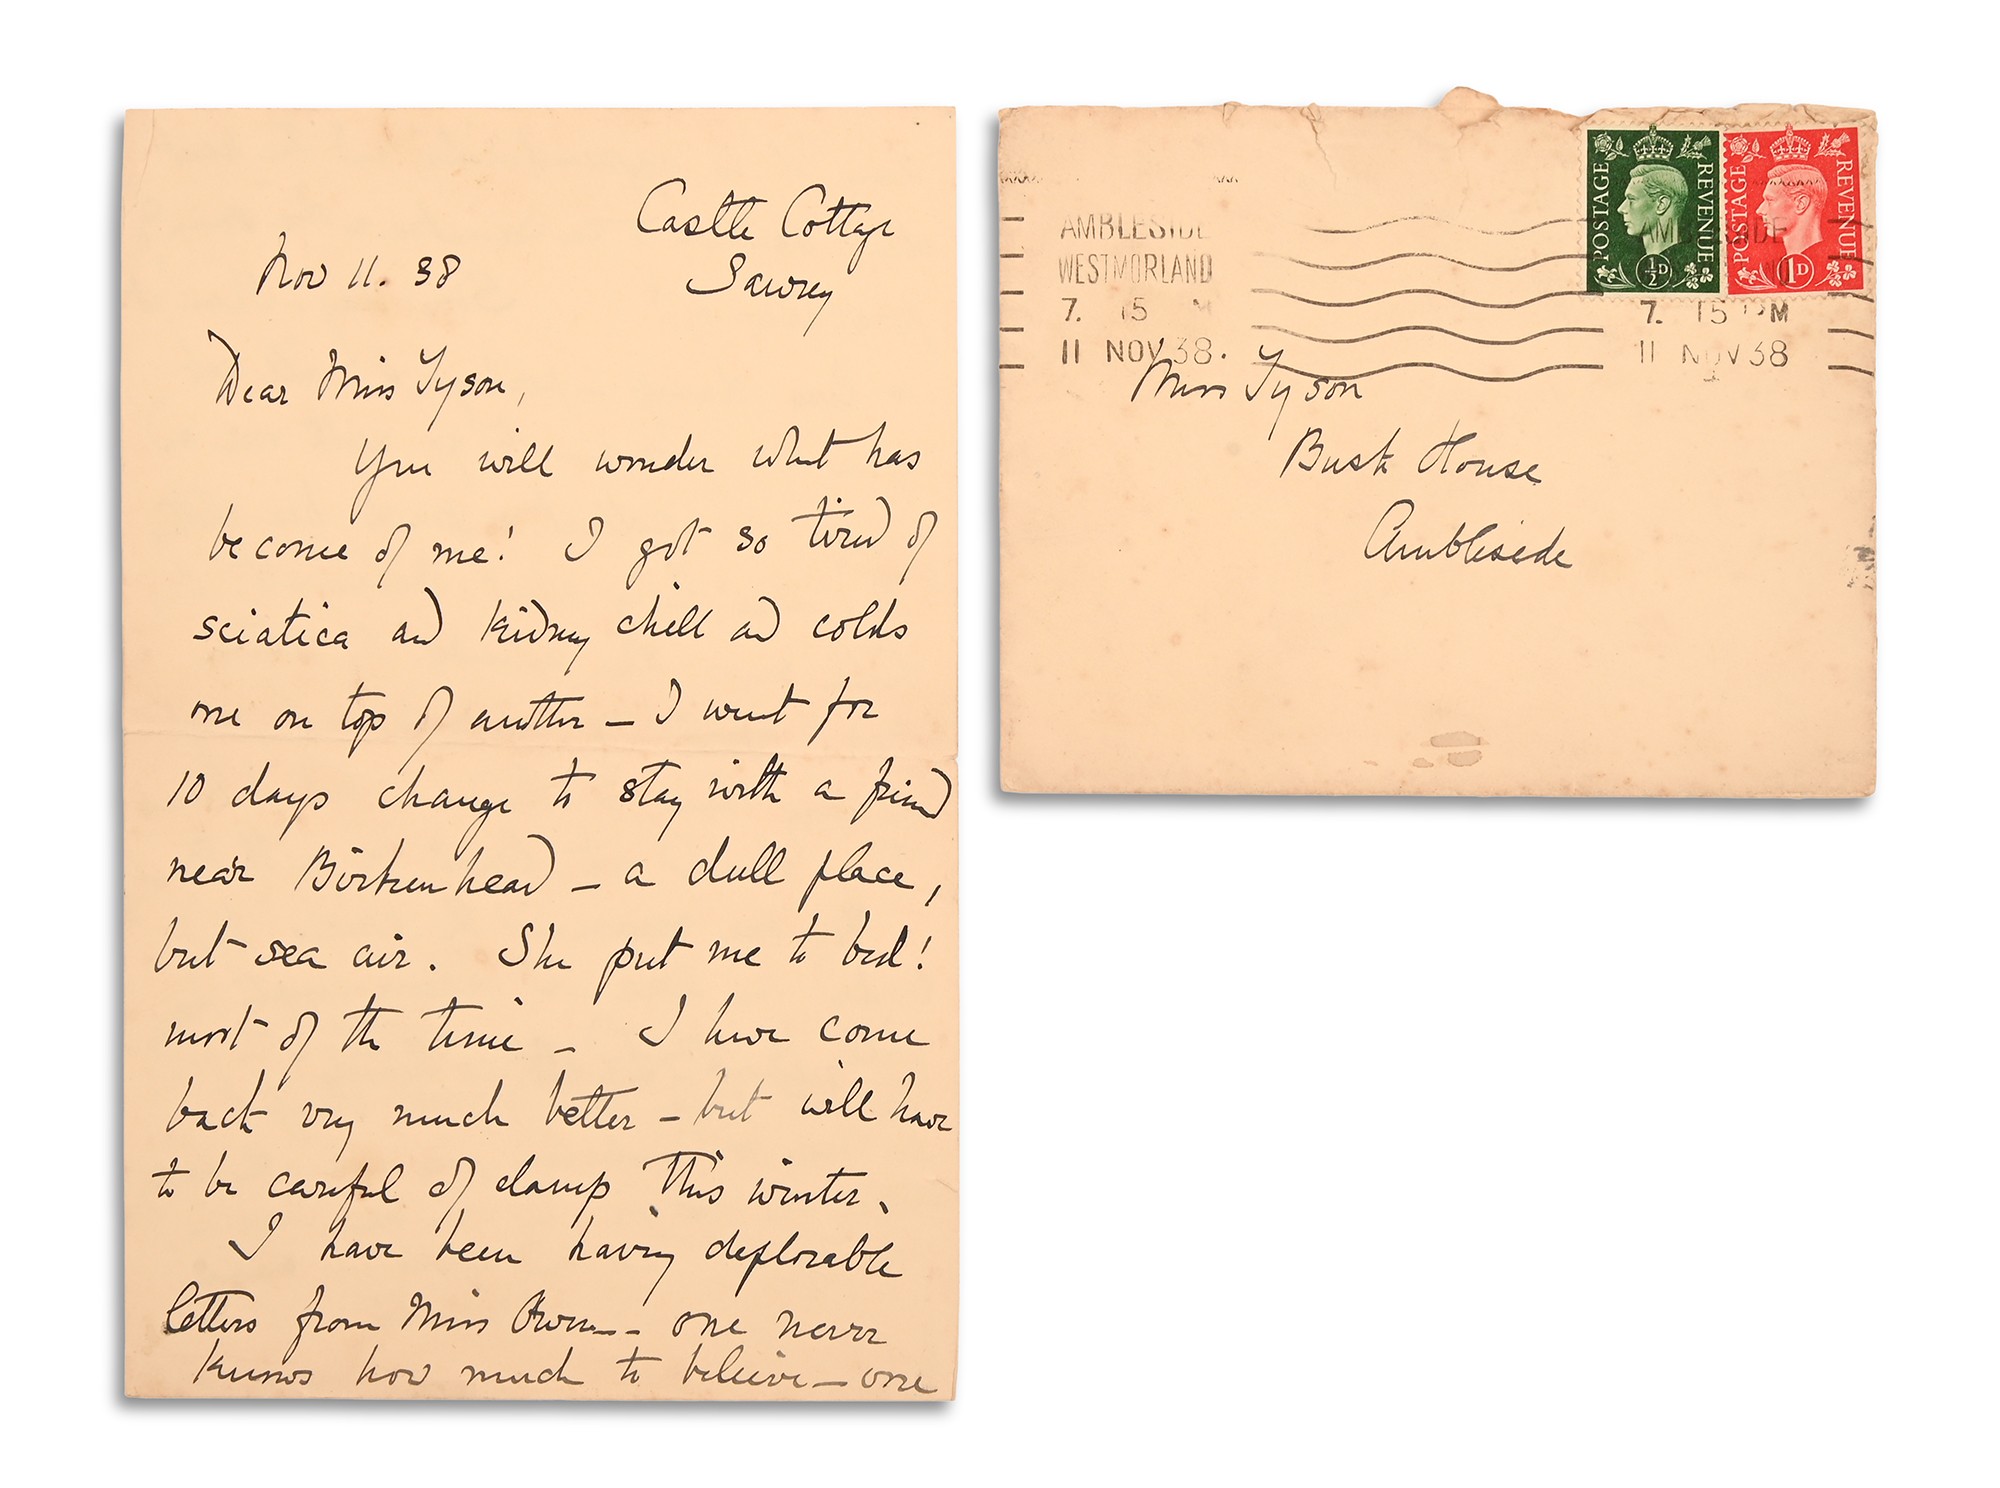 Castle Cottage
Sawrey
Nov 11. 38
Dear Miss Tyson,
You will wonder what has
become of me! I got so tired of
sciatica and kidney chill and colds
one on top of another – I went for
10 days change to stay with a friend
near Birkenhead – a dull place,
but sea air. She put me to bed!
most of the time – I have come
back very much better – but will have
to be careful of damp this winter.
I have been having deplorable
letters from Miss Owen – one never
knows how much to believe – one
POSTAGE REVENUE
½D
POSTAGE REVENUE
1D
AMBLESIDE
WESTMORLAND
7. 15 M
11 NOV 38.
AMBLESIDE
7. 15 PM
11 NOV 38
Miss Tyson
Busk House
Ambleside